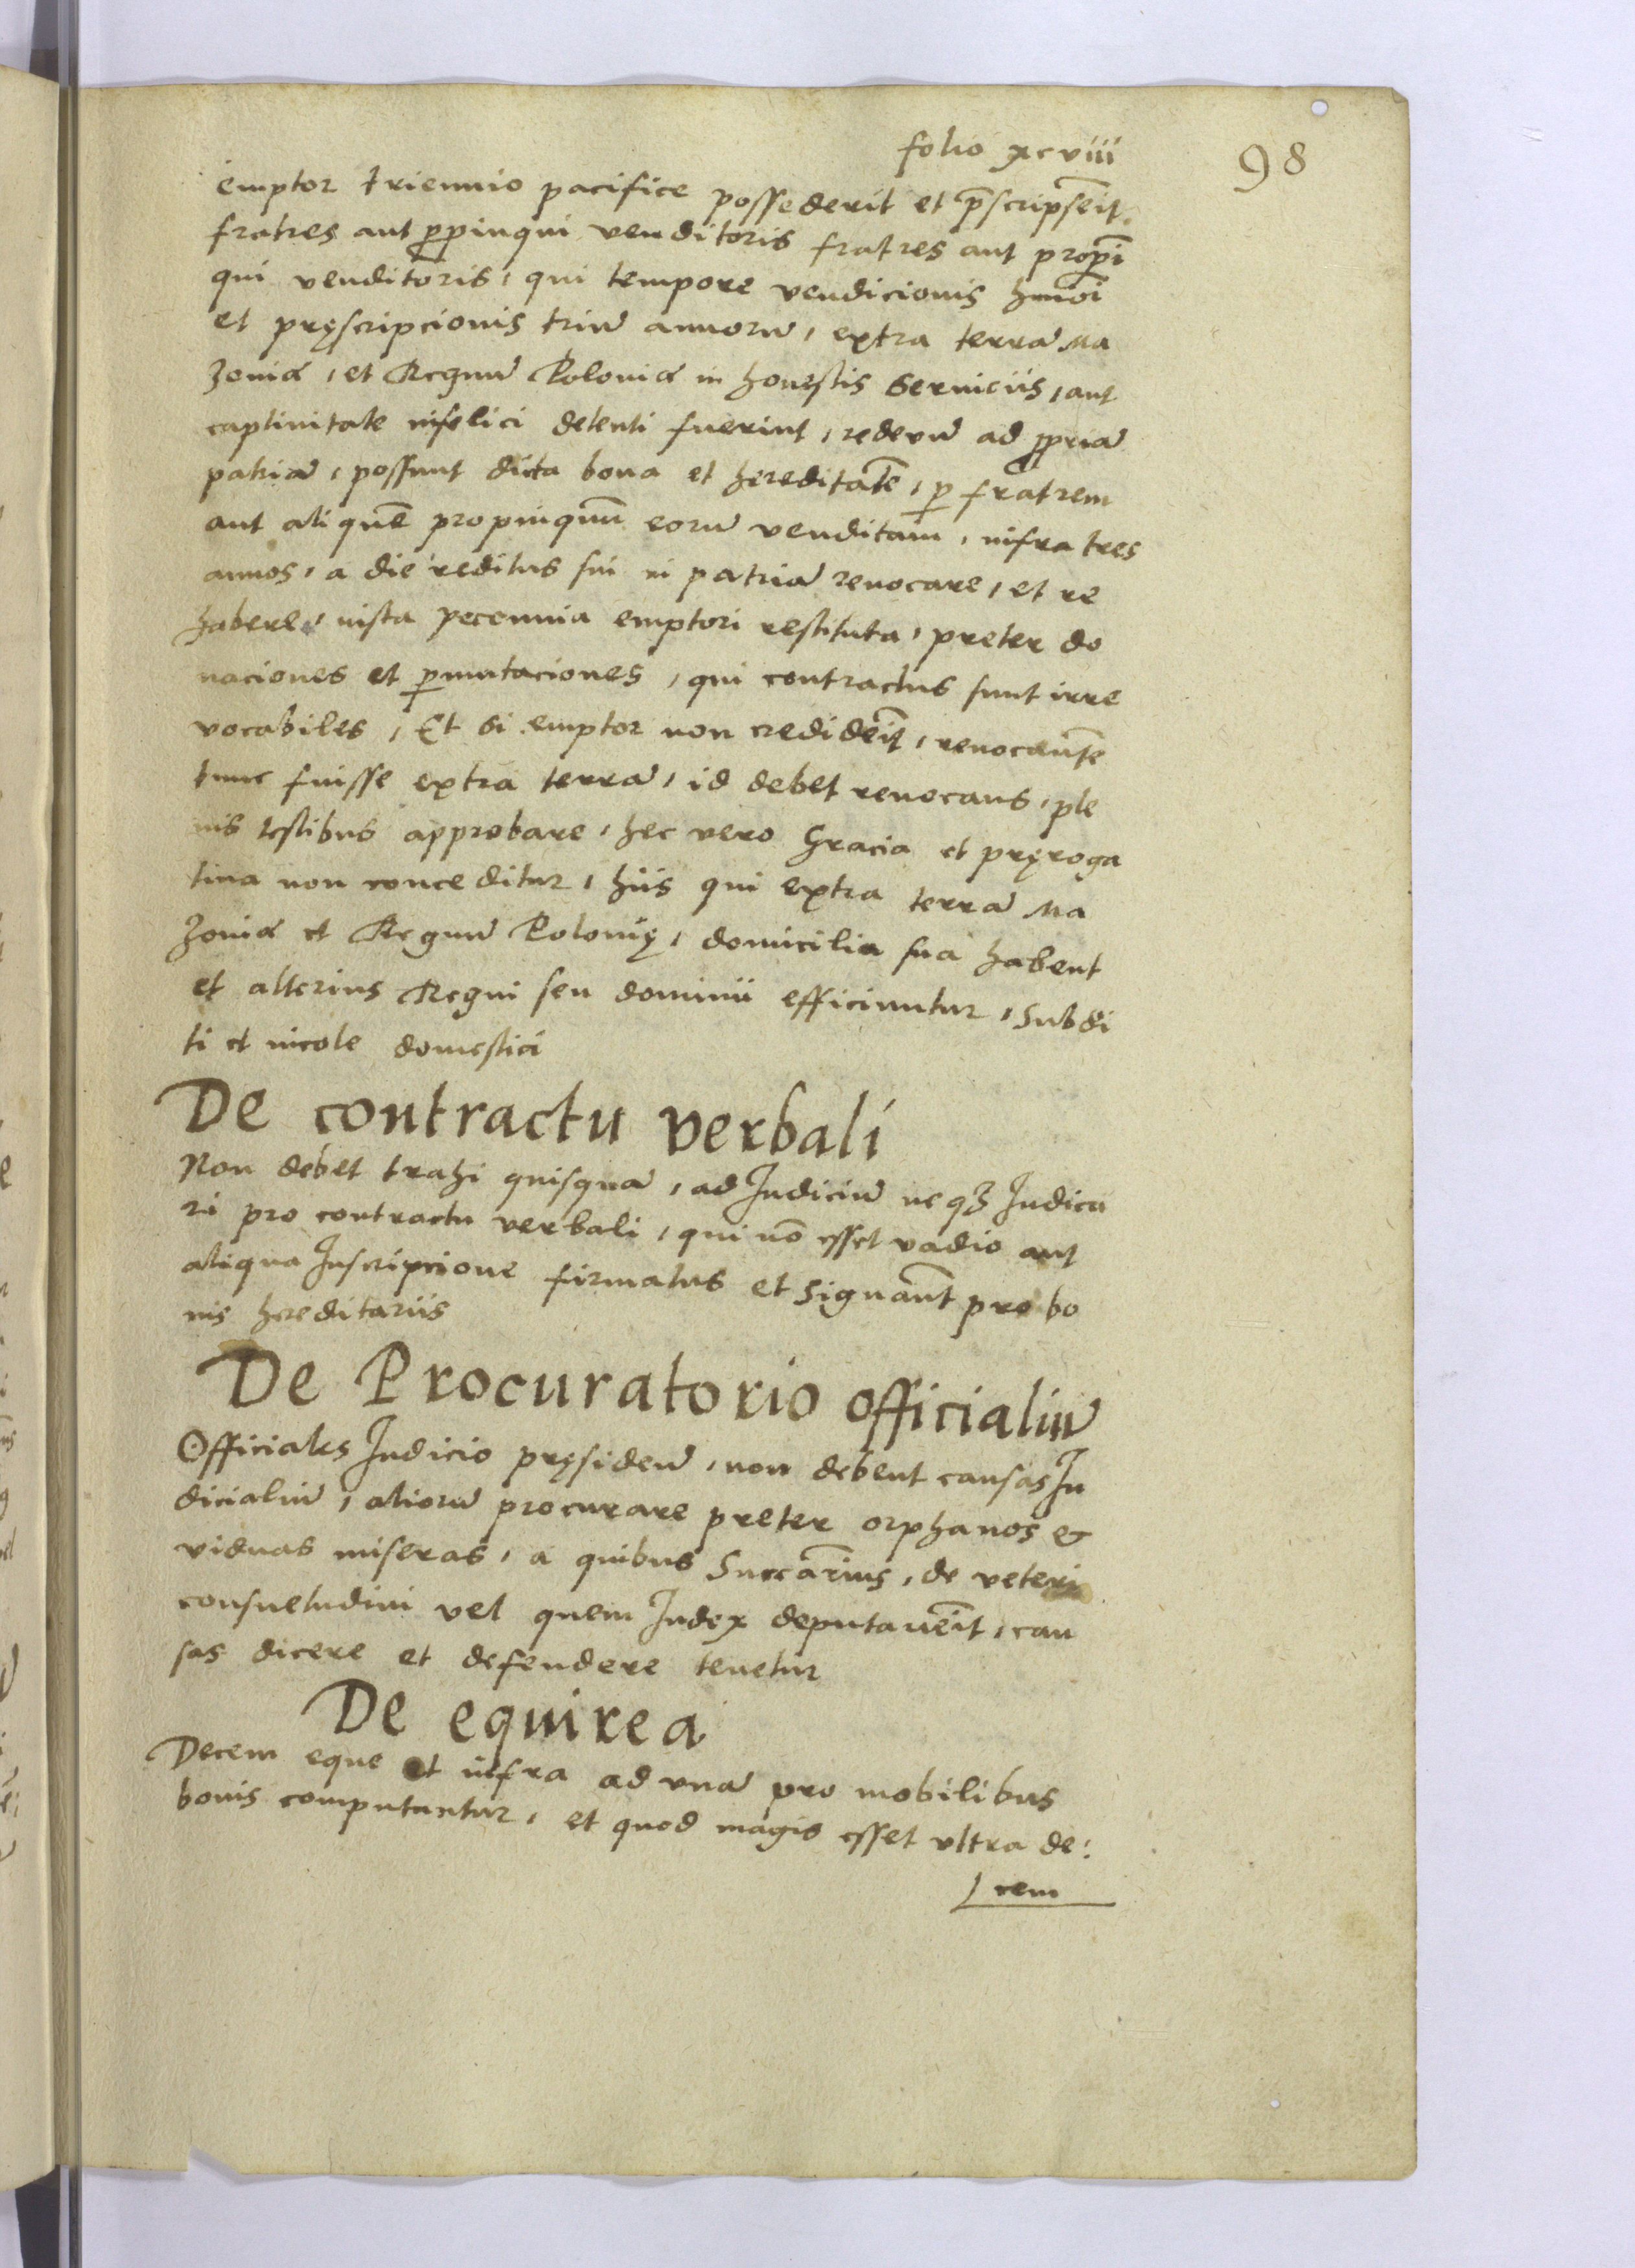 folio xcviii
98
emptor triennio pacifice possederit et p̄scripser̄it,
fratres aut ꝓpinqui venditoris fratres aut propī
qui venditoris, qui tempore vendicionis hmōi
et pręscripcionis triū annorū, extra terrā Ma
zoviæ, et Regnū Poloniæ in honestis serviciis, aut
captivitate infelici detenti fuerint, redeūn ad ꝓpriā
patriā, possunt dicta bona et hereditatē, ꝑ fratrem
aut aliquē propinquū eorū venditam, infra tres
annos, a die reditus sui in patriā revocare, et re
habere, iusta peccunia emptori restituta, preter do
naciones et ꝑmutaciones, qui contractus sunt irre
vocabiles, Et si emptor non credider̄it, revocantē
tunc fuisse extra terrā, id debet revocans, ple
nis testibus approbare, hec vero Gracia et pręroga
tiva non conceditur, hiis qui extra terrā Ma
zoviæ et Regnū Polonię, domicilia sua habent
et alterius Regni seu dominii efficiuntur, Subdi
ti et incole domestici
De contractu verbali
Non debet trahi quisquā, ad Judiciū neqꝫ Judica
ri pro contractu verbali, qui nō esset vadio aut
aliqua Inscripcione firmatus et signānt pro bo
nis hereditariis
De Procuratorio officialiū
Officiales Judicio pręsideñ, non debent causas Ju
dicialiū, aliorū procurare preter orphanos &
viduas miseras, a quibus Succarius, de veteri
consuetudini vel quem Judex deputaver̄it, cau
sas dicere et defendere tenetur
De equirea
Decem eque et infra ad unā pro mobilibus
bonis computantur, et quod magis esset ultra de:
cem